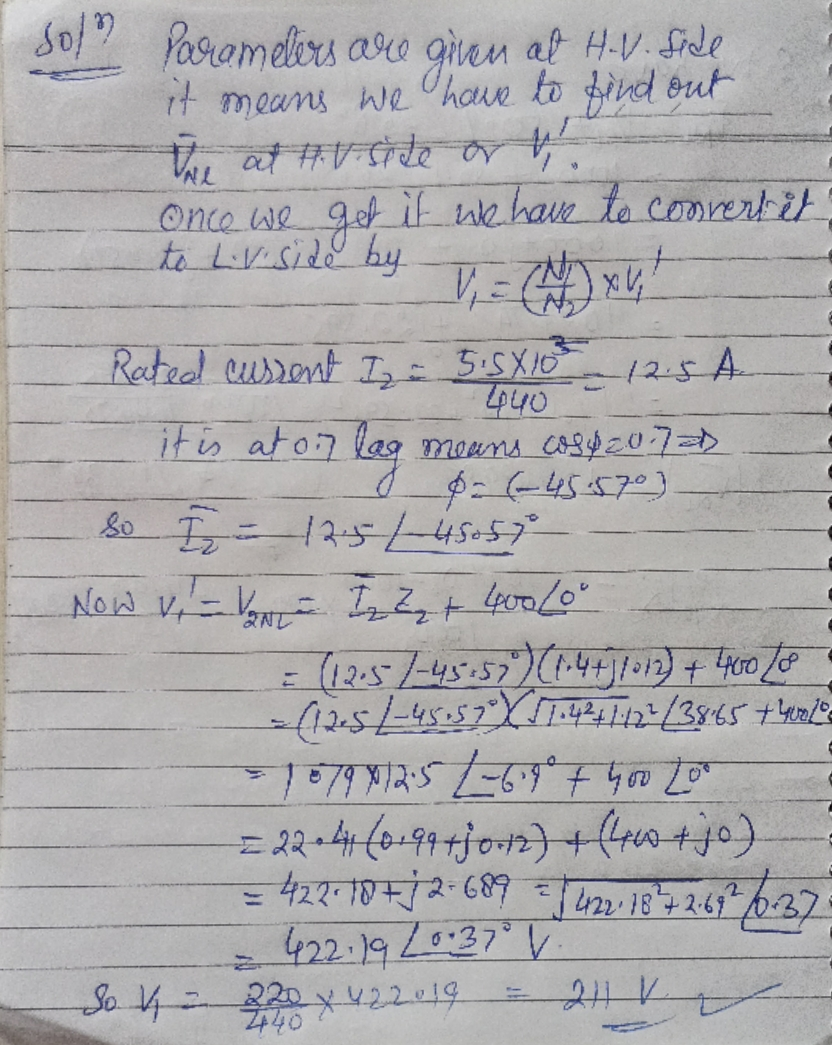 Solⁿ Parameters are given at H.V. Side
it means we have to find out
V̄_NL at H.V. Side or V₁'.
Once we get it we have to convert it
to L.V. Side by
V₁ = (N₁/N₂) × V₁'
Rated current I₂ = 5.5×10³/440 = 12.5 A
it is at 0.7 lag means cosφ=0.7 ⇒
φ = (-45.57°)
So Ī₂ = 12.5 ∠-45.57°
Now V₁' = V₂NL = Ī₂ Z₂ + 400∠0°
= (12.5 ∠-45.57°)(1.4+j1.12) + 400∠0°
= (12.5 ∠-45.57°)(√1.4²+1.12² ∠38.65 + 400∠0°
= 1.79×12.5 ∠-6.9° + 400 ∠0°
= 22.41(0.99+j0.12) + (400+j0)
= 422.18+j2.689 = √422.18²+2.69² ∠0.37
= 422.19 ∠0.37° V.
So V₁ = 220/440 × 422.19 = 211 V ✓